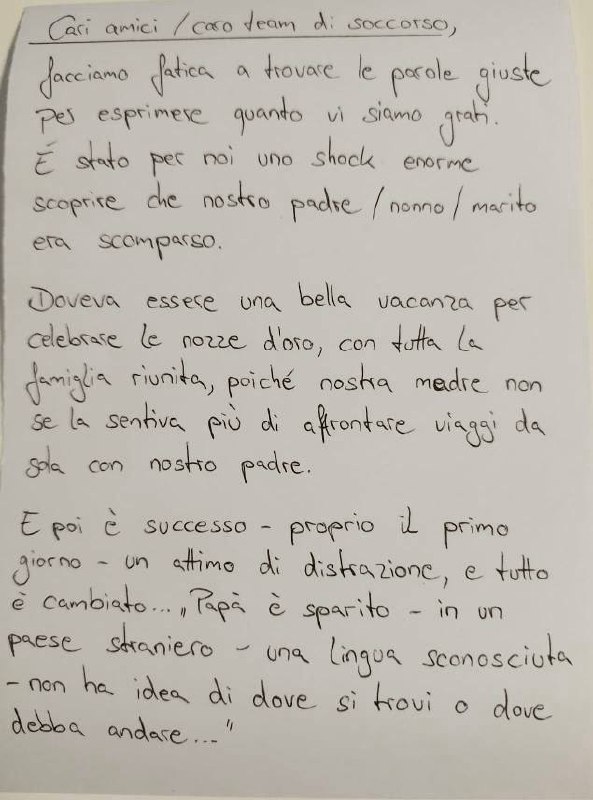 Cari amici / caro team di soccorso,
facciamo fatica a trovare le parole giuste
per esprimere quanto vi siamo grati.
É stato per noi uno shock enorme
scoprire che nostro padre / nonno / marito
era scomparso.
Doveva essere una bella vacanza per
celebrare le nozze d'oro, con tutta la
famiglia riunita, poiché nostra madre non
se la sentiva più di affrontare viaggi da
sola con nostro padre.
E poi è successo - proprio il primo
giorno - un attimo di distrazione, e tutto
è cambiato... „Papà è sparito - in un
paese straniero - una lingua sconosciuta
- non ha idea di dove si trovi o dove
debba andare..."